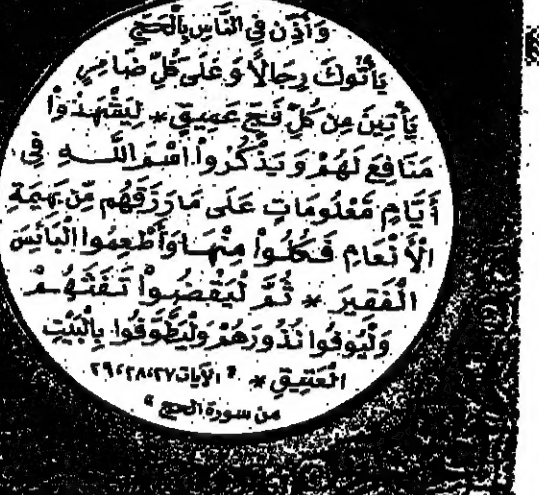 وَأَذِّن فِي النَّاسِ بِالْحَجِّ
يَأْتُوكَ رِجَالًا وَعَلَى كُلِّ ضَامِرٍ
يَأْتِينَ مِن كُلِّ فَجٍّ عَمِيقٍ * لِيَشْهَدُوا
مَنَافِعَ لَهُمْ وَيَذْكُرُوا اسْمَ اللَّـهِ فِي
أَيَّامٍ مَعْلُومَاتٍ عَلَى مَا رَزَقَهُم مِّن بَهِيمَةِ
الْأَنْعَامِ فَكُلُوا مِنْهَـا وَأَطْعِمُوا الْبَائِسَ
الْفَقِيرَ * ثُمَّ لْيَقْضُوا تَفَثَهُـمْ
وَلْيُوفُوا نُذُورَهُمْ وَلْيَطَّوَّفُوا بِالْبَيْتِ
الْعَتِيقِ * " الآيات ٢٧،٢٨،٢٩
من سورة الحج "